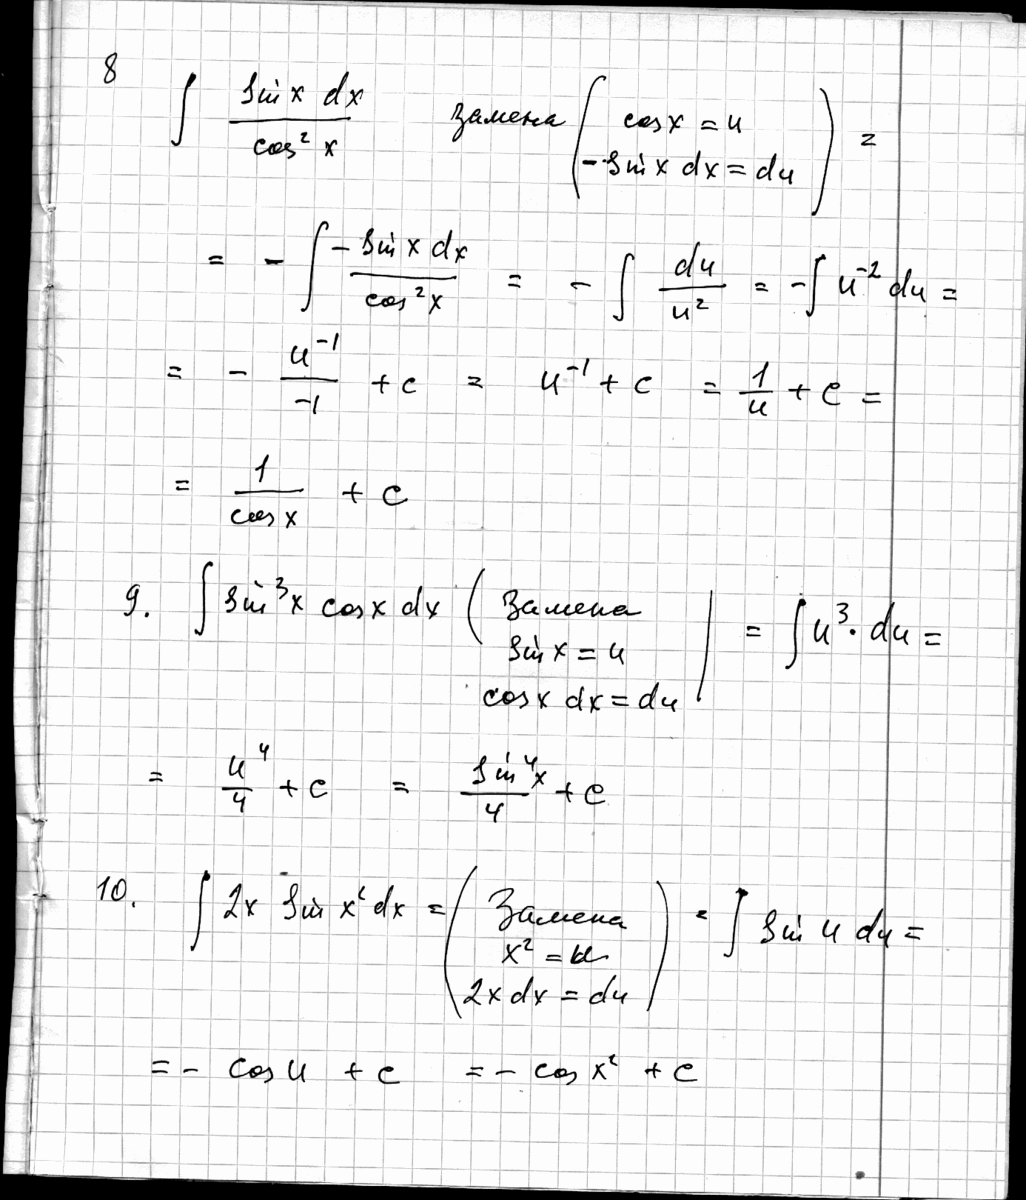 8
∫ sin x dx / cos² x замена ( cos x = u =
-sin x dx = du )
= - ∫ -sin x dx / cos² x = - ∫ du / u² = - ∫ u⁻² du =
= - u⁻¹ / -1 + c = u⁻¹ + c = 1/u + c =
= 1 / cos x + c
9. ∫ sin³ x cos x dx ( Замена | = ∫ u³ · du =
sin x = u
cos x dx = du
= u⁴ / 4 + c = sin⁴ x / 4 + c
10. ∫ 2x sin x² dx = ( Замена ) = ∫ sin u du =
x² = u
2x dx = du
= - cos u + c = - cos x² + c